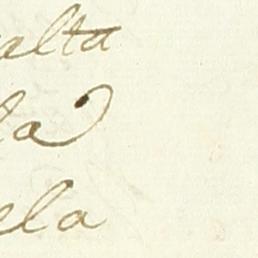 alta
la
ela